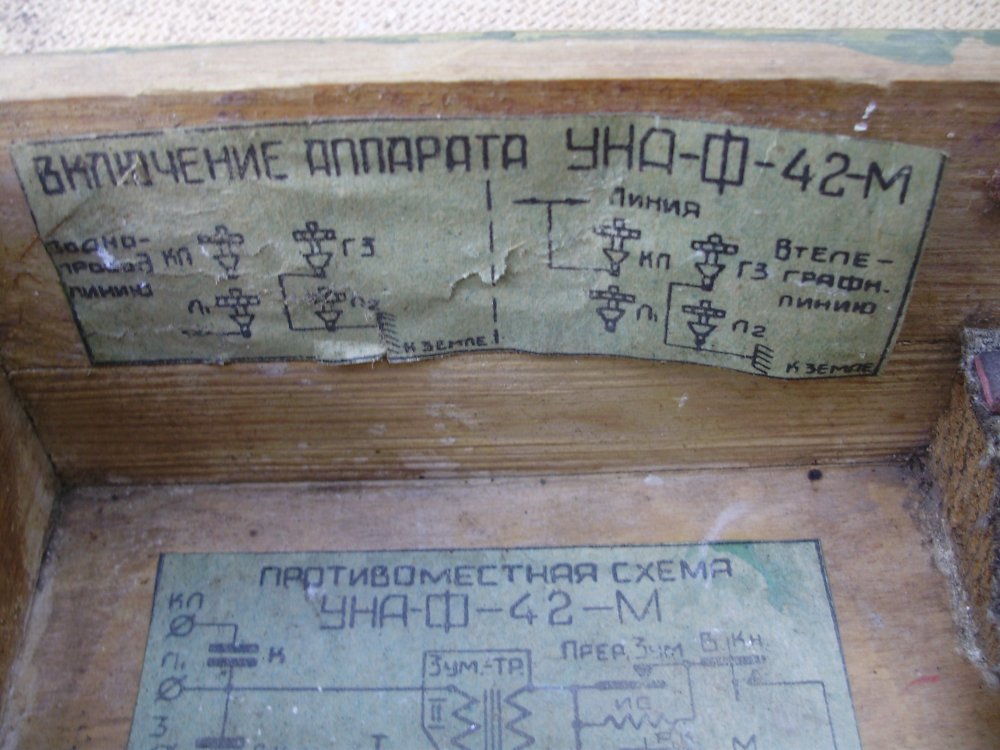 ВКЛЮЧЕНИЕ АППАРАТА УНА-Ф-42-М
В ОДНО-
ПРОВОД
ЛИНИЮ
КП
ГЗ
Л₁
Л₂
К ЗЕМЛЕ
ЛИНИЯ
КП
ГЗ
Л₁
Л₂
В ТЕЛЕ-
ГРАФН.
ЛИНИЮ
К ЗЕМЛЕ
ПРОТИВОМЕСТНАЯ СХЕМА
УНА-Ф-42-М
КП
К
Л₁
ЗУМ.-ТР
ПРЕР. ЗУМ
В. КН.
III
ИС
З
Т
М